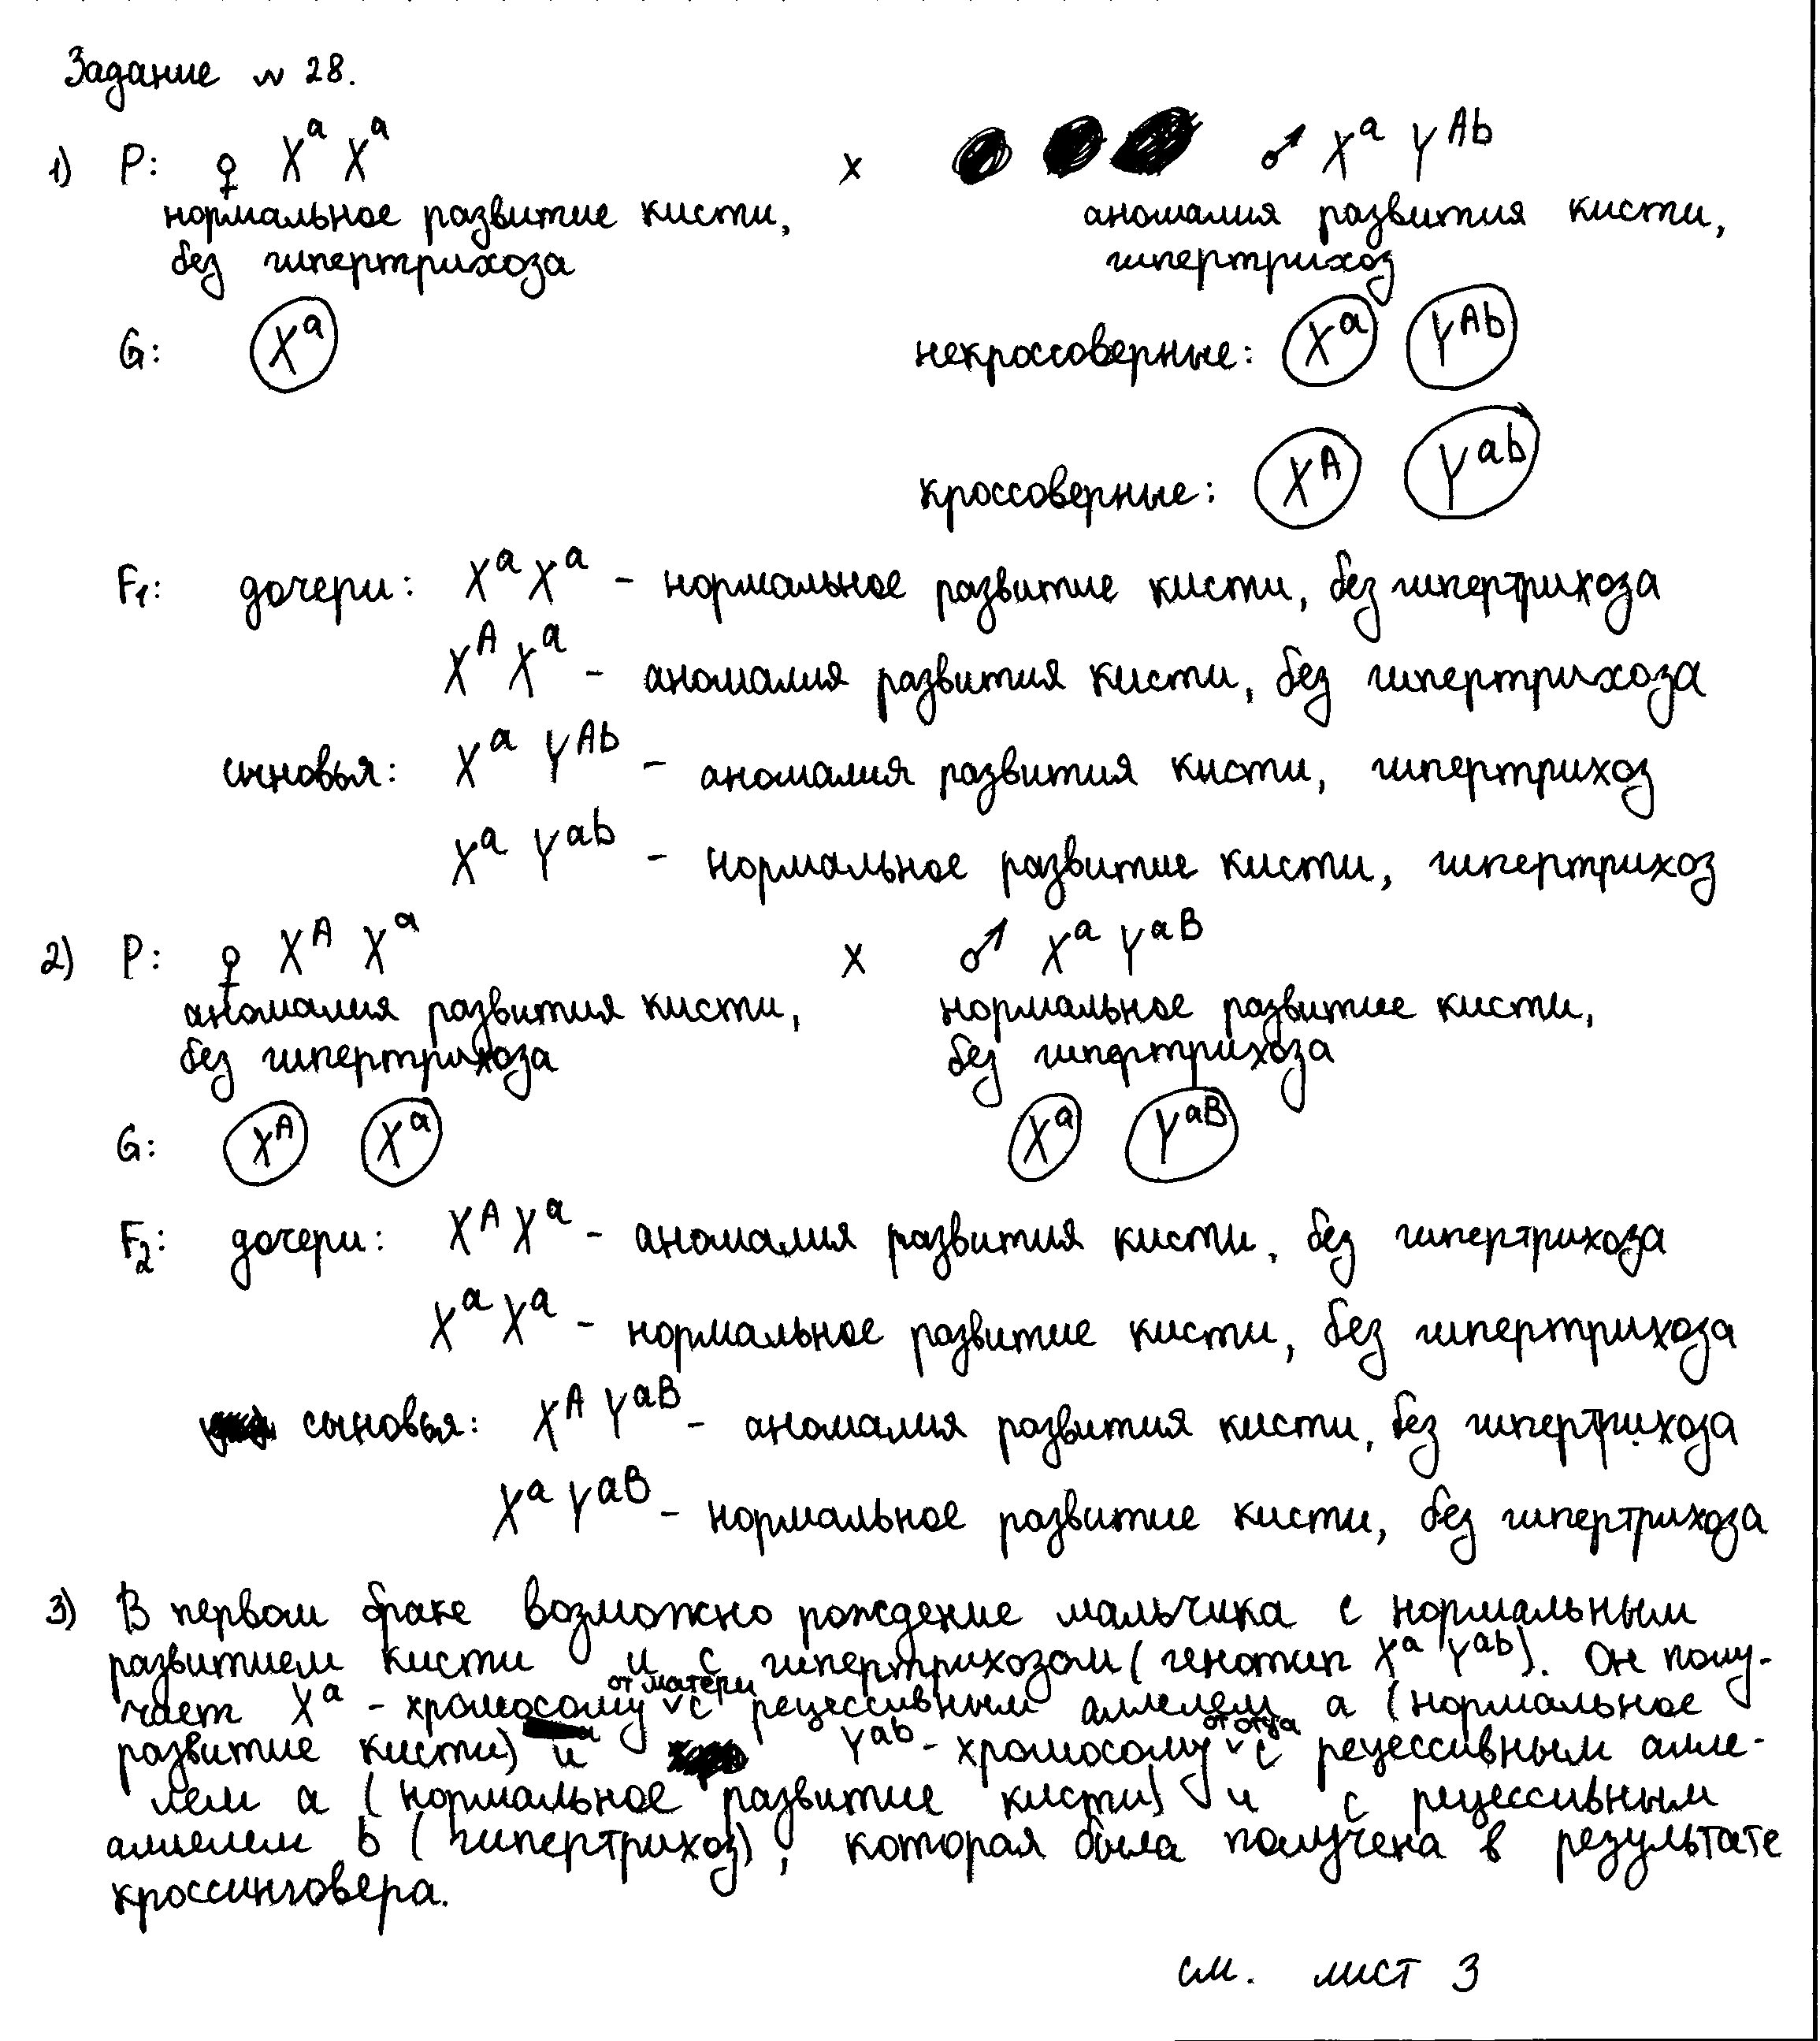 Задание № 28.
1) P: ♀ XᵃXᵃ x ♂ Xᵃ Yᴬᵇ
нормальное развитие кисти, аномалия развития кисти,
без гипертрихоза гипертрихоз
G: Xᵃ некроссоверные: Xᵃ Yᴬᵇ
кроссоверные: Xᴬ Yᵃᵇ
F₁: дочери: XᵃXᵃ - нормальное развитие кисти, без гипертрихоза
XᴬXᵃ - аномалия развития кисти, без гипертрихоза
сыновья: Xᵃ Yᴬᵇ - аномалия развития кисти, гипертрихоз
Xᵃ Yᵃᵇ - нормальное развитие кисти, гипертрихоз
2) P: ♀ Xᴬ Xᵃ x ♂ Xᵃ Yᵃᴮ
аномалия развития кисти, нормальное развитие кисти,
без гипертрихоза без гипертрихоза
G: Xᴬ Xᵃ Xᵃ Yᵃᴮ
F₂: дочери: XᴬXᵃ - аномалия развития кисти, без гипертрихоза
XᵃXᵃ - нормальное развитие кисти, без гипертрихоза
сыновья: XᴬYᵃᴮ - аномалия развития кисти, без гипертрихоза
XᵃYᵃᴮ - нормальное развитие кисти, без гипертрихоза
3) В первом браке возможно рождение мальчика с нормальным
развитием кисти и с гипертрихозом (генотип Xᵃ Yᵃᵇ). Он полу-
чает Xᵃ - хромосому от матери с рецессивным аллелем а (нормальное
развитие кисти) и Yᵃᵇ - хромосому от отца с рецессивным алле-
лем а (нормальное развитие кисти) и с рецессивным
аллелем b (гипертрихоз), которая была получена в результате
кроссинговера.
см. лист 3